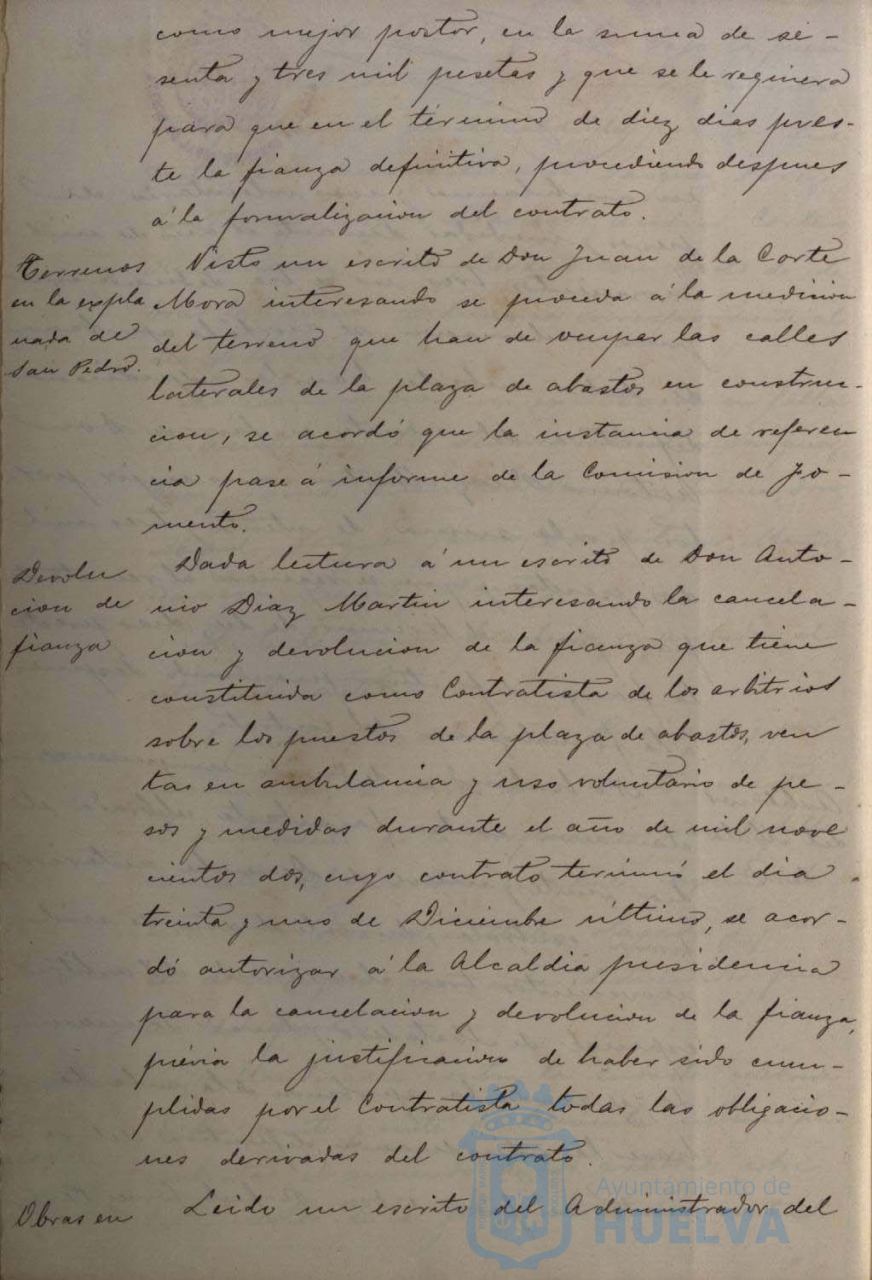 como mejor postor, en la suma de se-
senta y tres mil pesetas y que se le requiera
para que en el término de diez dias pres-
te la fianza definitiva, procediendo despues
á la formalizacion del contrato.
Terrenos
en la expla
nada de
San Pedro.
Visto un escrito de Don Juan de la Corte
Mora interesando se proceda á la medicion
del terreno que han de ocupar las calles
laterales de la plaza de abastos en construc-
cion, se acordó que la instancia de referen
cia pase á informe de la Comision de Fo-
mento.
Devolu
cion de
fianza
Dada lectura á un escrito de Don Anto-
nio Diaz Martin interesando la cancela-
cion y devolucion de la fianza que tiene
constituida como Contratista de los arbitrios
sobre los puestos de la plaza de abastos, ven
tas en ambulancia y uso voluntario de pe-
sos y medidas durante el año de mil nove
cientos dos, cuyo contrato terminó el dia
treinta y uno de Diciembre último, se acor-
dó autorizar á la Alcaldia presidencia
para la cancelacion y devolucion de la fianza,
prévia la justificacion de haber sido cum-
plidas por el Contratista todas las obligacio-
nes derivadas del contrato.
Obras en
Leido un escrito del Administrador del
Ayuntamiento de
HUELVA